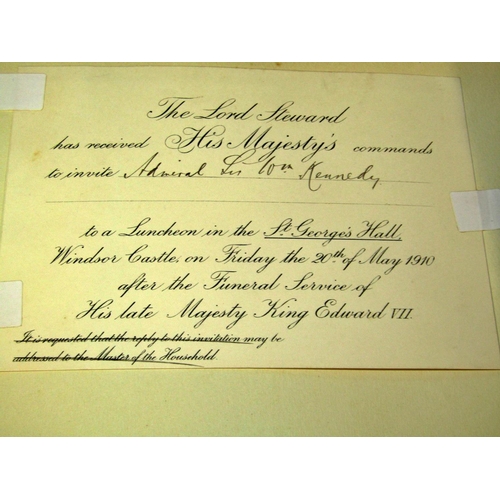 The Lord Steward
has received His Majesty's commands
to invite Admiral Sir Wm Kennedy
to a Luncheon in the St. George's Hall,
Windsor Castle, on Friday the 20th of May 1910
after the Funeral Service of
His late Majesty King Edward VII.
It is requested that the reply to this invitation may be
addressed to the Master of the Household.